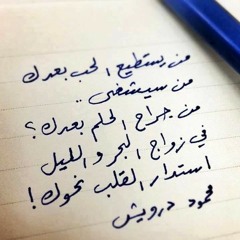 من يستطيع الحب بعدك
من سيشفى ..
من جراح الحلم بعدك؟
في زواج البحر والليل
استدار القلب نحوك!
محمود درويش